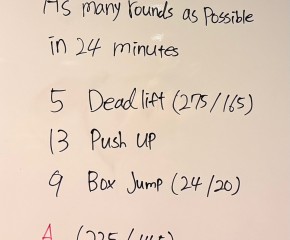 As many rounds as possible
in 24 minutes
5 Deadlift (275/165)
13 Push UP
9 Box Jump (24/20)
A (225/